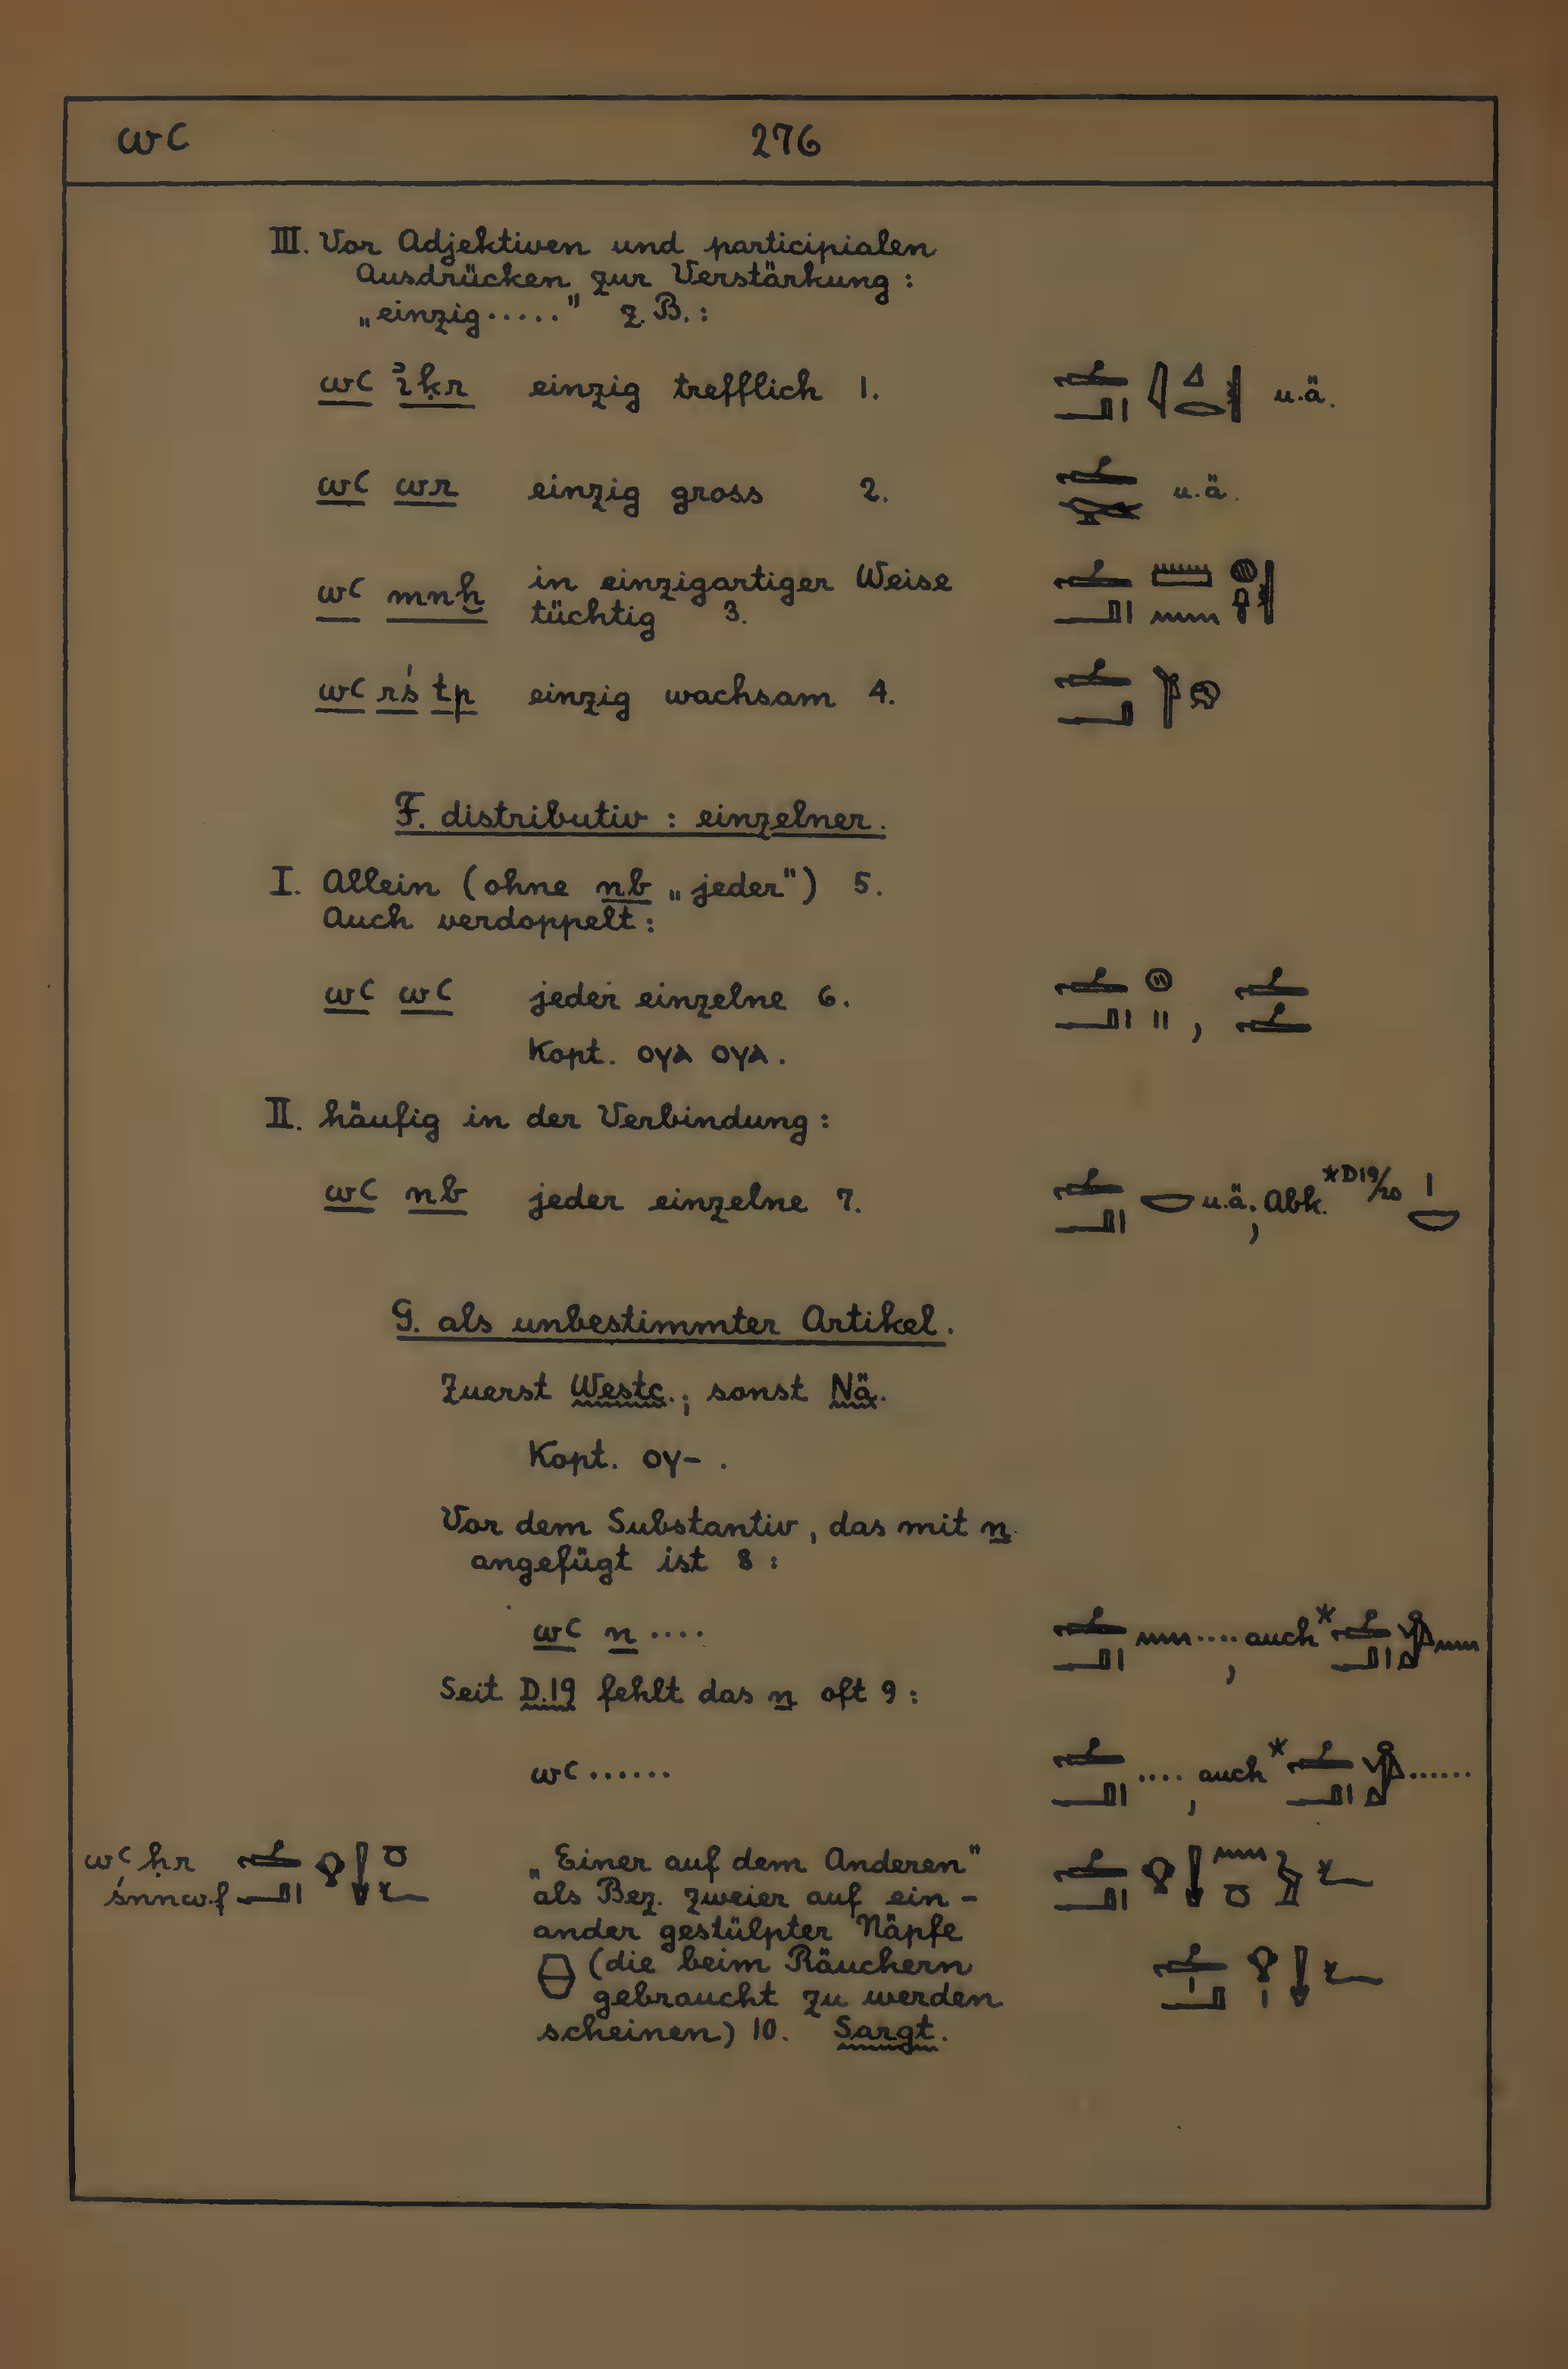 wꜥ 276
III. Vor Adjektiven und participialen
Ausdrücken zur Verstärkung :
„einzig....." z.B. :
wꜥ ı͗ḳr einzig trefflich 1. u.ä.
wꜥ wr einzig gross 2. u.ä.
wꜥ mnḫ in einzigartiger Weise
tüchtig 3.
wꜥ rś tp einzig wachsam 4.
F. distributiv : einzelner.
I. Allein (ohne nb „jeder") 5.
Auch verdoppelt :
wꜥ wꜥ jeder einzelne 6. ,
Kopt. ⲟⲩⲁ ⲟⲩⲁ.
II. häufig in der Verbindung :
wꜥ nb jeder einzelne 7. u.ä.; Abk. *D19/20
G. als unbestimmter Artikel.
Zuerst Westc.; sonst Nä.
Kopt. ⲟⲩ- .
Vor dem Substantiv, das mit n
angefügt ist 8 :
wꜥ n .... .... , auch *
Seit D.19 fehlt das n oft 9 :
wꜥ ...... .... , auch * ......
wꜥ ḥr „Einer auf dem Anderen"
śnnw.f als Bez. zweier auf ein-
ander gestülpter Näpfe
(die beim Räuchern
gebraucht zu werden
scheinen) 10. Sargt.